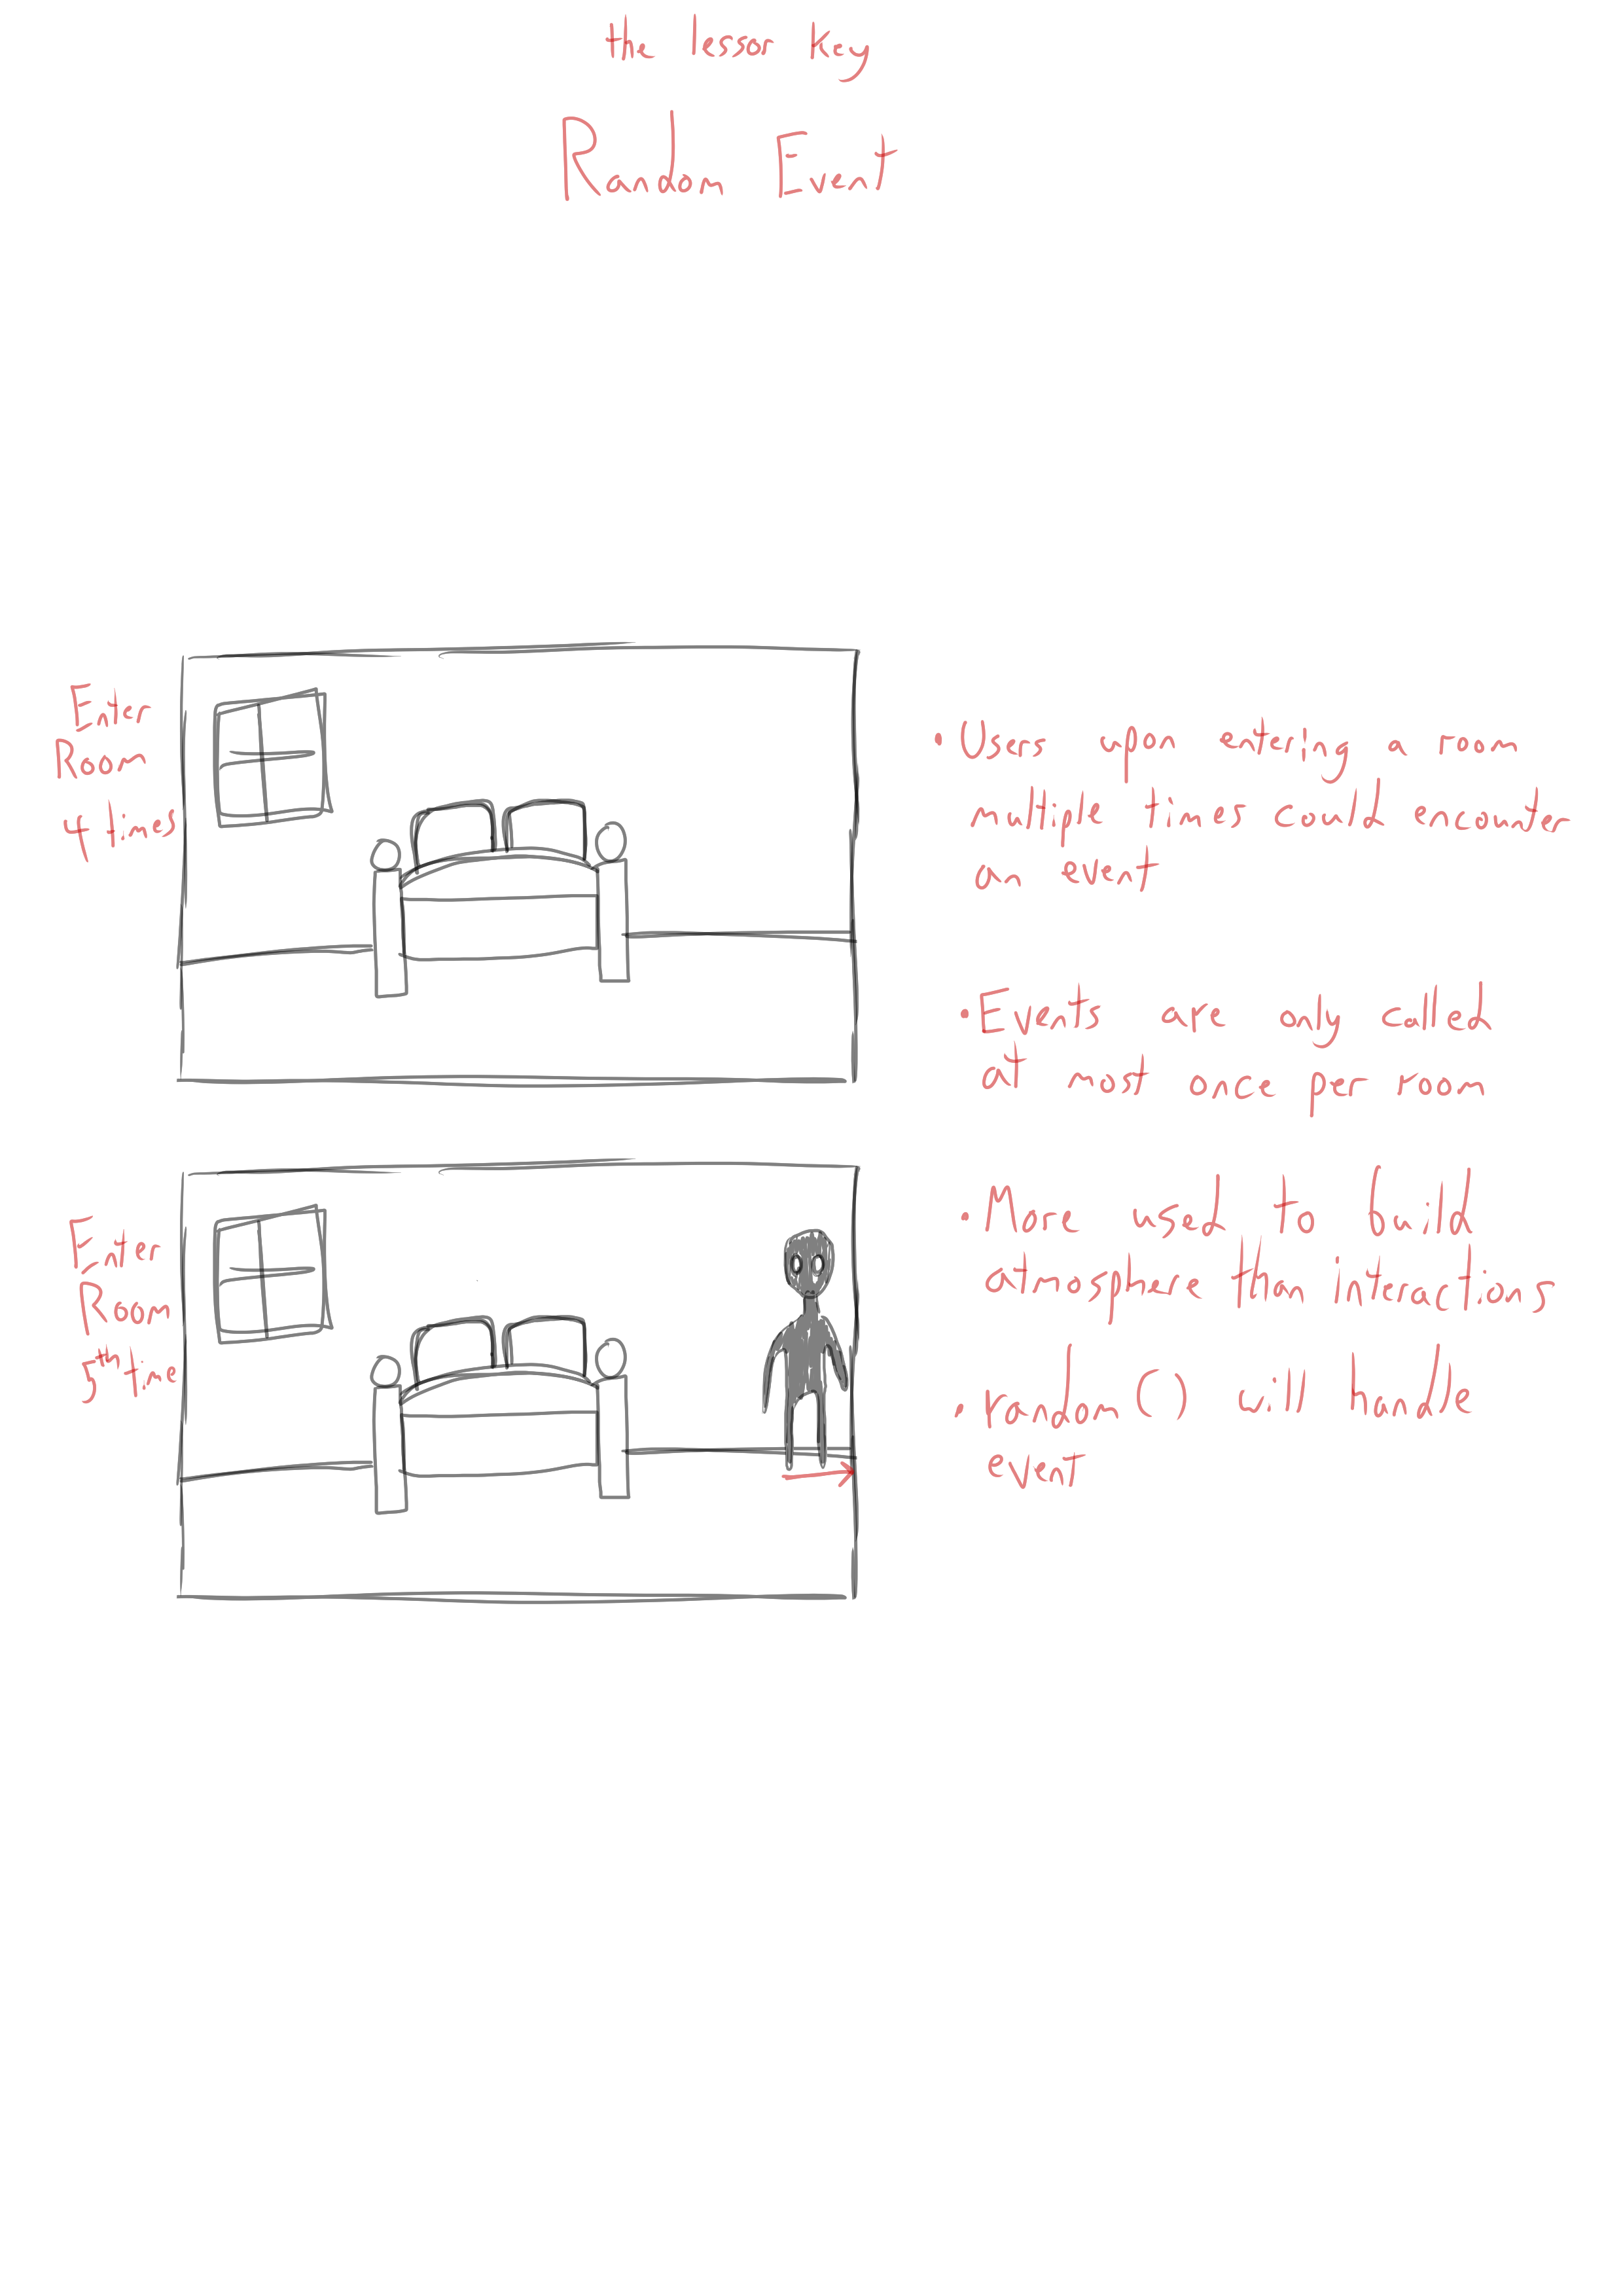 the lessor key
Random Event
Enter
Room
4 times
• Users upon entering a room
multiple times could encounter
an event
• Events are only called
at most once per room
Enter
Room
5th time
• More used to build
atmosphere than interactions
• random() will handle
event